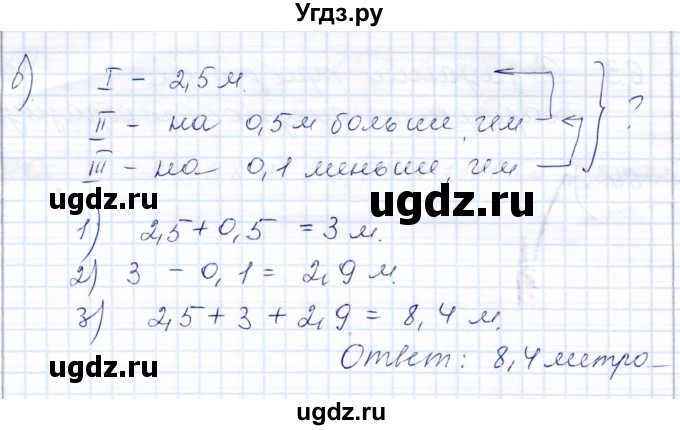 Угдз.ру
б)
I – 2,5 м.
II – на 0,5 м больше, чем
III – на 0,1 меньше, чем
?
ugdz.ru
ugdz.ru
1) 2,5 + 0,5 = 3 м.
2) 3 – 0,1 = 2,9 м.
ugdz.ru
ugdz.ru
3) 2,5 + 3 + 2,9 = 8,4 м.
Ответ: 8,4 метро
ugdz.ru